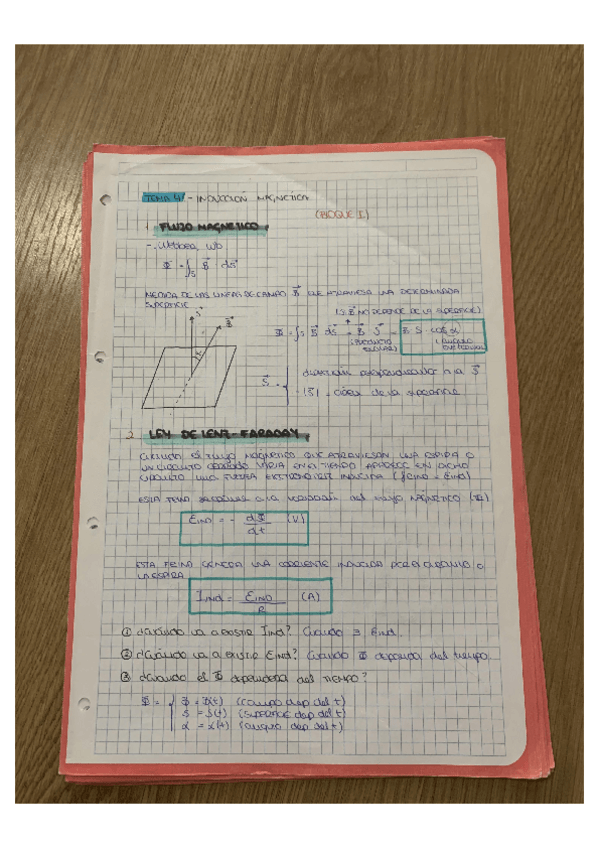 TEMA 4 - INDUCCIÓN MAGNÉTICA
(BLOQUE I)
1. FLUJO MAGNÉTICO.
-, Weber, Wb
Φ = ∫s B⃗ · dS⃗
MEDIDA DE LAS LINEAS DE CAMPO B⃗ QUE ATRAVIESA UNA DETERMINADA
SUPERFICIE
(si B⃗ NO DEPENDE DE LA SUPERFICIE)
Φ = ∫s B⃗ dS⃗ = B⃗ S⃗ = B S · cos α
(PRODUCTO
ESCALAR)
S⃗
B⃗
α
S⃗ = { a la S⃗
|S⃗| = de la superficie
2. LEY DE LENZ-FARADAY.
CUANDO EL FLUJO MAGNÉTICO QUE ATRAVIESAN UNA ESPIRA O
UN CIRCUITO VARIA EN EL TIEMPO APARECE EN DICHO
CIRCUITO UNA FUERZA INDUCIDA
ESTA a la del flujo MAGNÉTICO (Φ)
εIND = - dΦ/dt (V)
ESTA GENERA UNA CORRIENTE INDUCIDA POR EL CIRCUITO O
LA ESPIRA
IIND = εIND/R (A)
① ¿Cuándo va a existir Iind? Cuando ∃ Eind.
② ¿Cuándo va a existir Eind? Cuando Φ dependa del tiempo.
③ ¿Cuándo el Φ dependerá del TIEMPO?
Φ = { B = B(t) (campo dep del t)
S = S(t) (SUPERFICIE dep del t)
α = α(t) (ángulo dep del t)